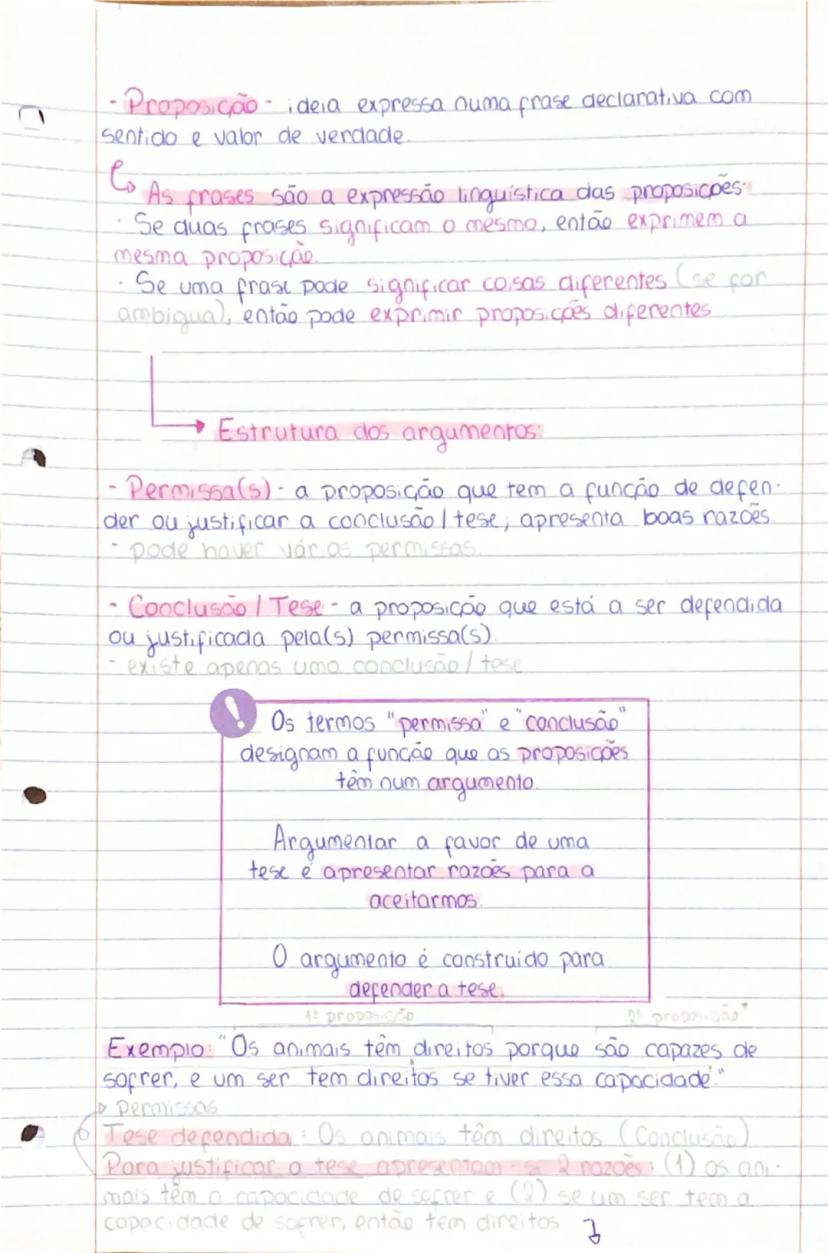 - Proposição - ideia expressa numa frase declarativa com
sentido e valor de verdade.
As frases são a expressão linguística das proposições.
· Se duas frases significam o mesmo, então exprimem a
mesma proposição.
· Se uma frase pode significar coisas diferentes (se for
ambigua), então pode exprimir proposições diferentes
Estrutura dos argumentos:
- Permissa(s) - a proposição que tem a função de defen-
der ou justificar a conclusão / tese, apresenta boas razões.
- pode haver várias permissas.
- Conclusão / Tese - a proposição que está a ser defendida
ou justificada pela(s) permissa(s).
- existe apenas uma conclusão / tese
! Os termos "permissa" e "conclusão"
designam a função que as proposições
têm num argumento.
Argumentar a favor de uma
tese é apresentar razões para a
aceitarmos.
O argumento é construido para
defender a tese.
1ª proposição
2ª proposição
Exemplo: "Os animais têm direitos porque são capazes de
sofrer, e um ser tem direitos se tiver essa capacidade."
Permissas
Tese defendida: Os animais têm direitos (Conclusão)
Para justificar a tese apresentam-se 2 razões: (1) os ani-
mais têm a capacidade de sofrer e (2) se um ser tem a
capacidade de sofrer, então tem direitos